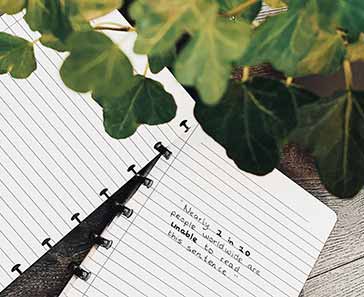 Nearly 2 in 20
people worldwide are
unable to read
this sentence.